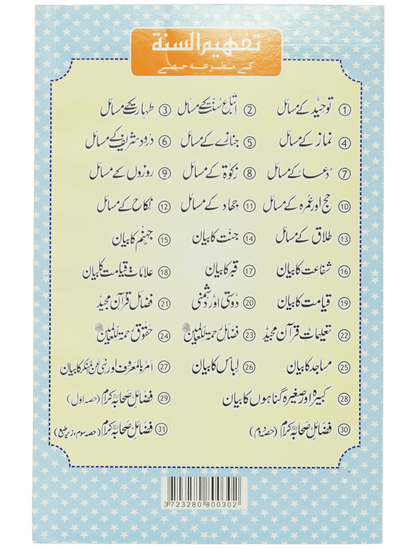 تفہیم السنۃ
کے مطبوعہ حصے
① توحید کے مسائل ② اتباع سنت کے مسائل ③ طہارت کے مسائل
④ نماز کے مسائل ⑤ جنازے کے مسائل ⑥ درود شریف کے مسائل
⑦ دعا کے مسائل ⑧ زکوٰۃ کے مسائل ⑨ روزوں کے مسائل
⑩ حج اور عمرہ کے مسائل ⑪ جہاد کے مسائل ⑫ نکاح کے مسائل
⑬ طلاق کے مسائل ⑭ جنت کا بیان ⑮ جہنم کا بیان
⑯ شفاعت کا بیان ⑰ قبر کا بیان ⑱ علامات قیامت کا بیان
⑲ قیامت کا بیان ⑳ دوستی اور دشمنی ㉑ فضائل قرآن مجید
㉒ تعلیمات قرآن مجید ㉓ فضائل رحمۃ للعالمین ﷺ ㉔ حقوق رحمۃ للعالمین ﷺ
㉕ مساجد کا بیان ㉖ لباس کا بیان ㉗ امر بالمعروف اور نہی عن المنکر کا بیان
㉘ کبیرہ اور صغیرہ گناہوں کا بیان ㉙ فضائل صحابہ کرام (حصہ اول)
㉚ فضائل صحابہ کرام (حصہ دوم) ㉛ فضائل صحابہ کرام (حصہ سوم، زیر طبع)
3723280800302